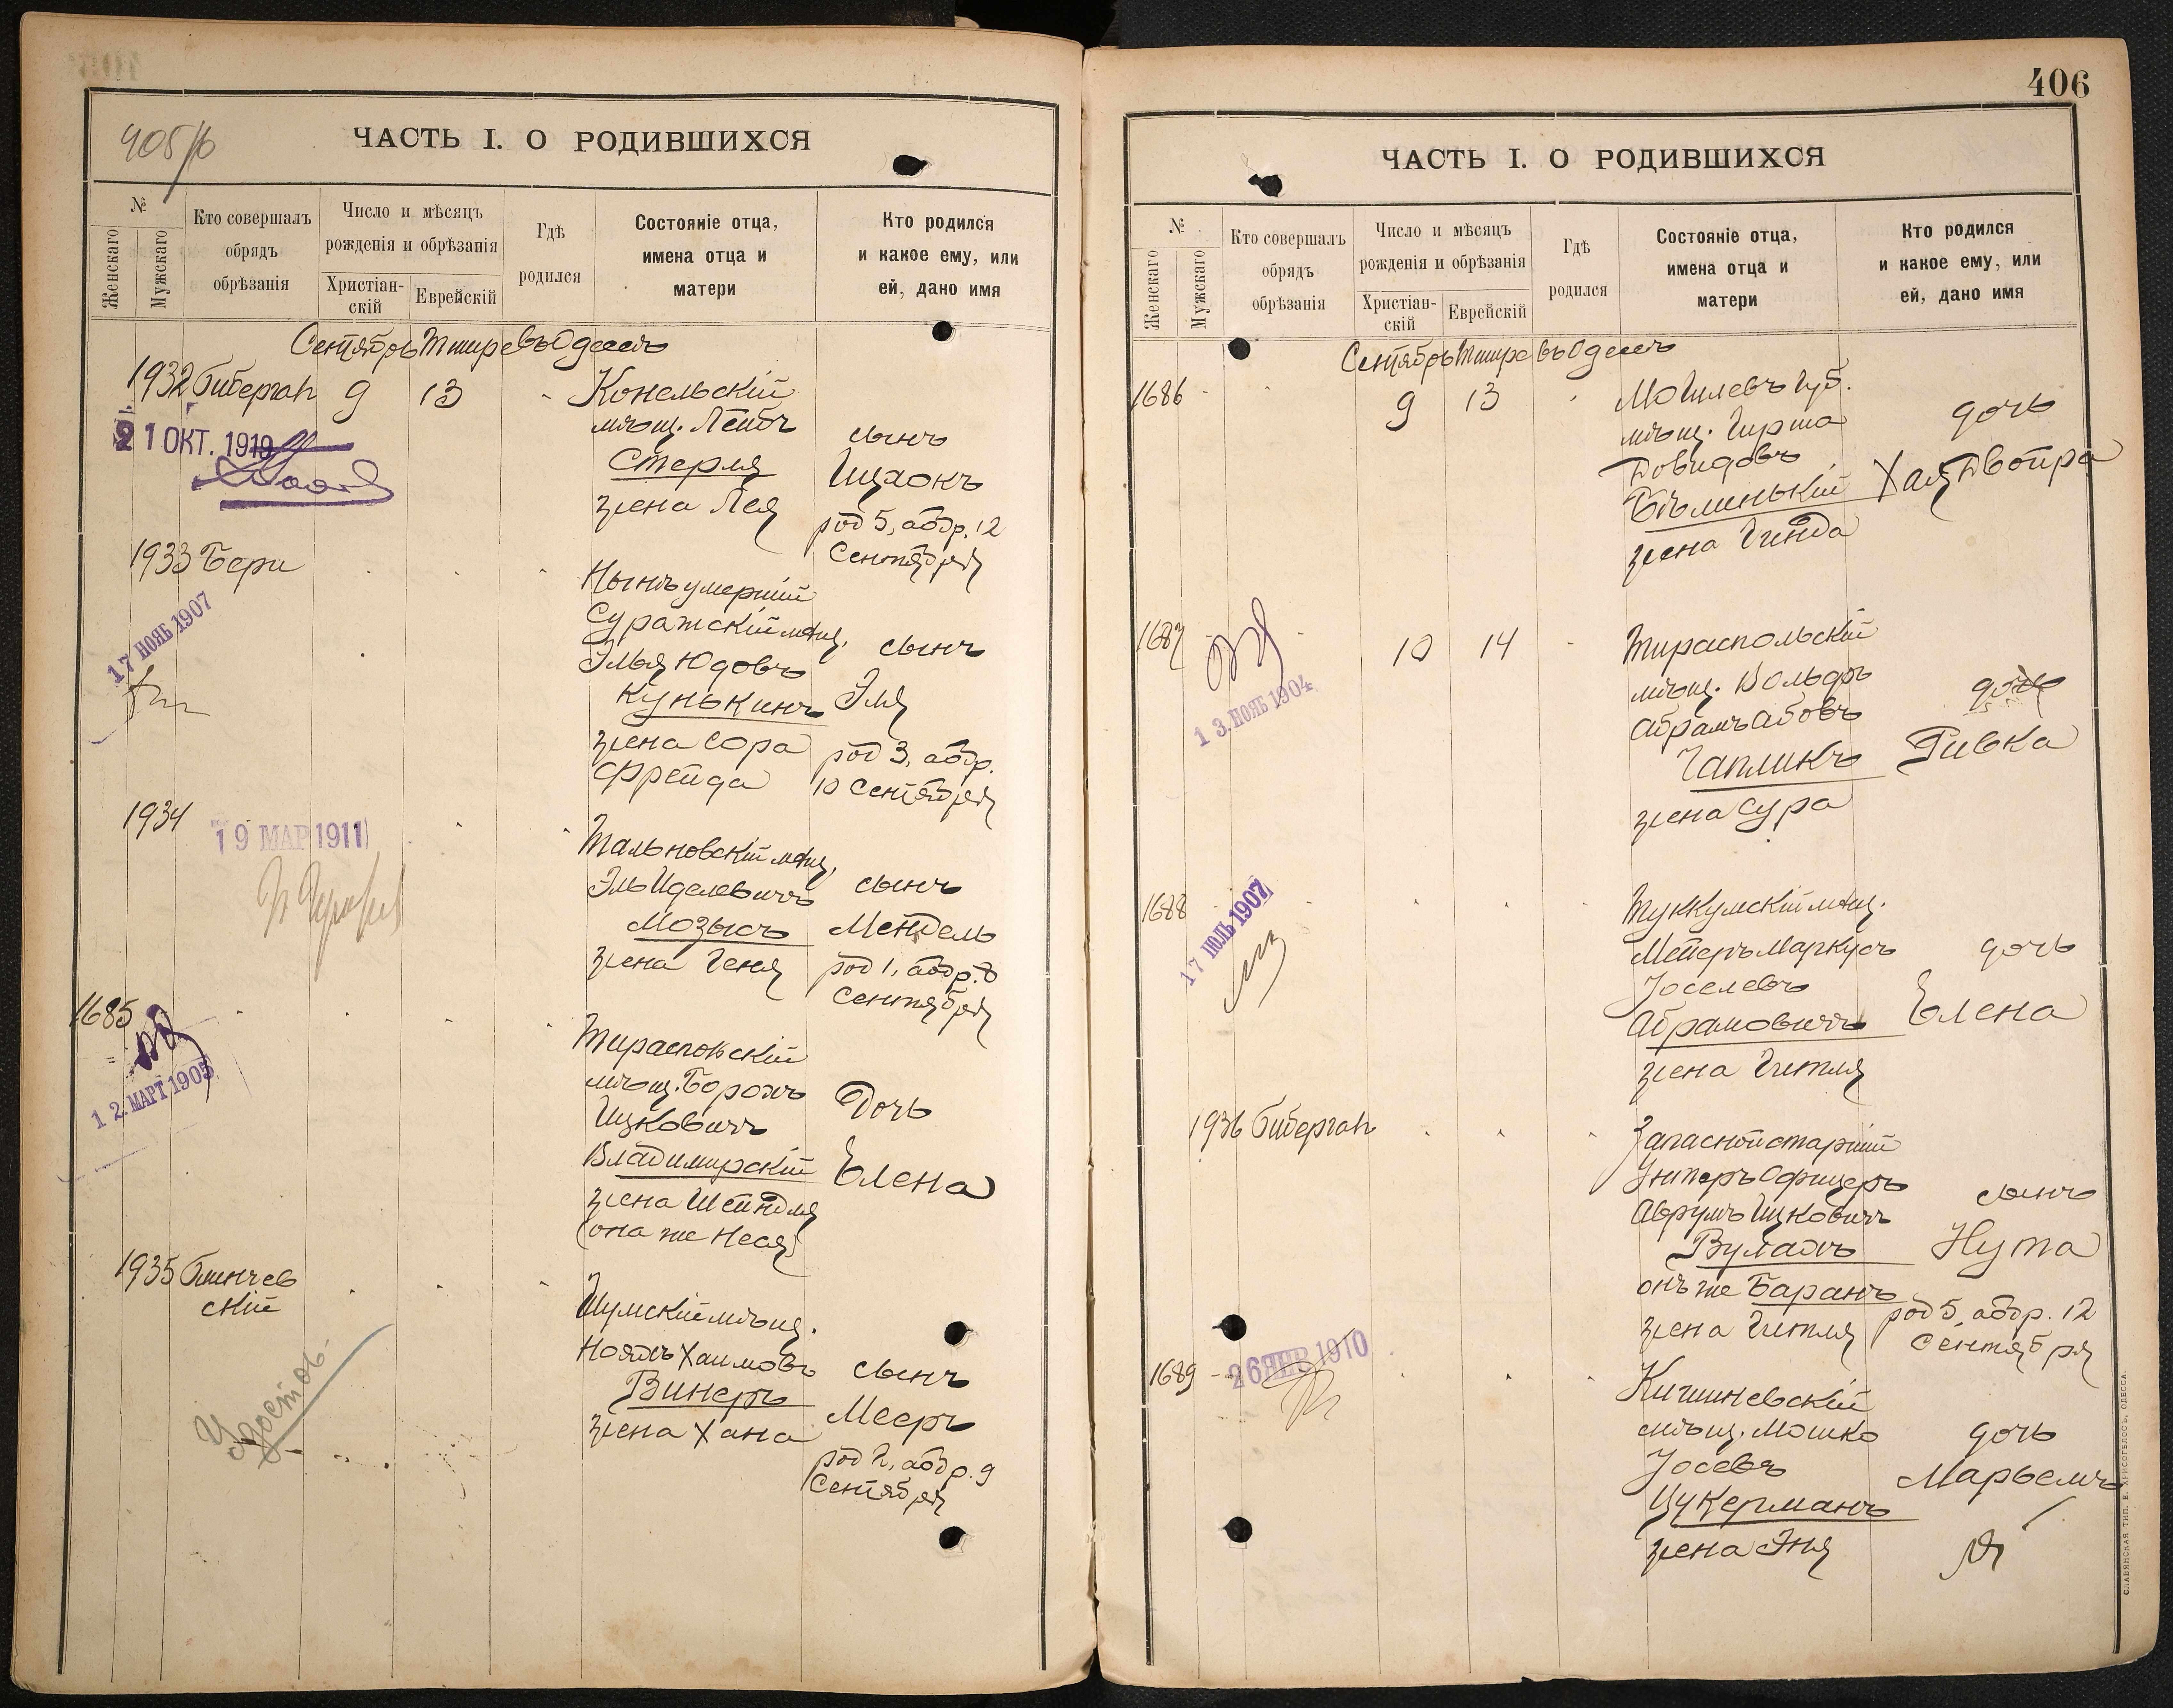 405/б
ЧАСТЬ I. О РОДИВШИХСЯ
№
Женскаго
Мужскаго
Кто совершалъ
обрядъ
обрѣзанія
Число и мѣсяцъ
рожденія и обрѣзанія
Христіан-
скій
Еврейскій
Гдѣ
родился
Состояніе отца,
имена отца и
матери
Кто родился
и какое ему, или
ей, дано имя
Сентябрь Тишре въ Одессѣ
1932 Биберган 9 13
Конельскій
мѣщ. Лейбъ
Стерля
жена Лея
сынъ
Ицхокъ
род 5, абдр. 12
Сентября
21 ОКТ. 1919
1933 Бери
Нынѣ умершій
Суражскій мѣщ.
Элья Юдовъ
Кунькинъ
жена Сора
Фрейда
сынъ
Эля
род 3, абдр.
10 Сентября
17 НОЯБ 1907
1934
19 МАР 1911
Тальновскій мѣщ.
Эль Иделевичъ
Мозысъ
жена Геня
сынъ
Мендель
род 1, абдр. 8
Сентября
1685
12. МАРТ 1905
Тираспольскій
мѣщ. Борохъ
Ицковичъ
Владимирскій
жена Шейндля
(она же Неся)
Дочь
Елена
1935 Блинчев
скій
Шумскій мѣщ.
Нояхъ Хаимовъ
Винеръ
жена Хана
сынъ
Мееръ
род 2, абдр. 9
Сентября
Удостов.
406
ЧАСТЬ I. О РОДИВШИХСЯ
№
Женскаго
Мужскаго
Кто совершалъ
обрядъ
обрѣзанія
Число и мѣсяцъ
рожденія и обрѣзанія
Христіан-
скій
Еврейскій
Гдѣ
родился
Состояніе отца,
имена отца и
матери
Кто родился
и какое ему, или
ей, дано имя
Сентябрь Тишре въ Одессѣ
1686 9 13
Могилевъ губ.
мѣщ. Гирша
Довидовъ
Бѣлинькій
жена Гинда
дочь
Хая Двойра
1687 10 14
13. НОЯБ 1904
Тираспольскій
мѣщ. Вольфъ
Абрамъ Абовъ
Чапликъ
жена Сура
дочь
Ривка
1688
17 ІЮЛЬ 1907
Туккумскій мѣщ.
Мейеръ Маркусъ
Іоселевъ
Абрамовичъ
жена Гитля
дочь
Елена
1936 Биберган
Запасной старшій
Унтеръ Офицеръ
Аврумъ Ицковичъ
Вулахъ
онъ же Баранъ
жена Гитля
сынъ
Нута
род 5, абдр. 12
Сентября
1689
26 ЯНВ 1910
Кишиневскій
мѣщ. Мошко
Іосевъ
Цукерманъ
жена Эня
дочь
Марьемъ
СЛАВЯНСКАЯ ТИП. Е. ХРИСОГЕЛОСЪ, ОДЕССА.